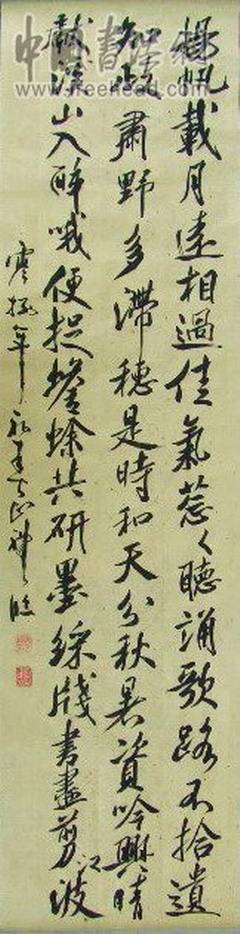 揚帆載月遠相過佳氣葱々聽誦歌路不拾遺
知政肅野多滯穗是時和天分秋暑資吟興晴
獻溪山入醉哦便捉蟾蜍共研墨綵牋書盡剪江波
www.freehead.com